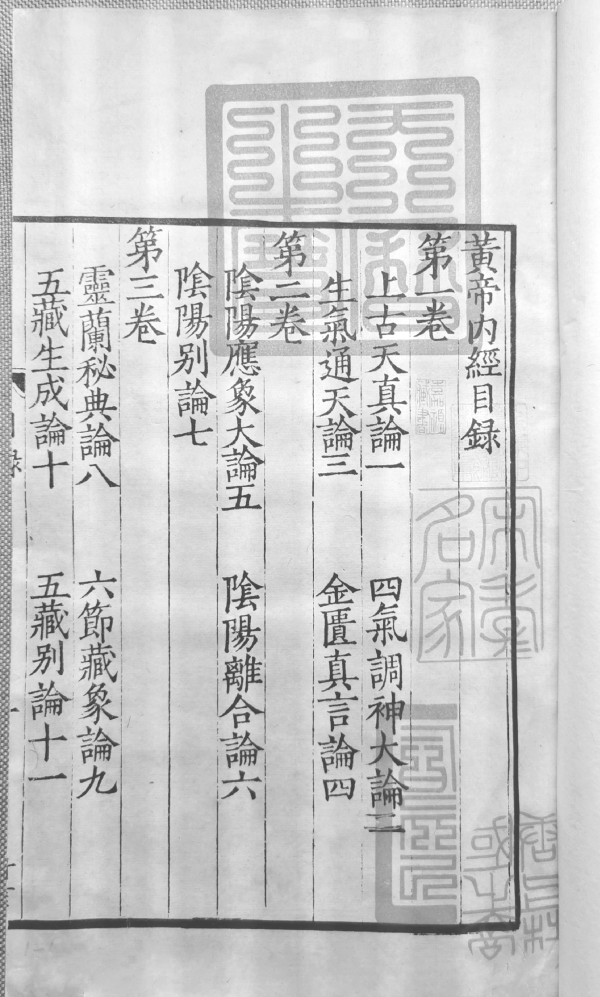 黃帝內經目録
第一卷
上古天真論一　四氣調神大論二
生氣通天論三　金匱真言論四
第二卷
陰陽應象大論五　陰陽離合論六
陰陽别論七
第三卷
靈蘭秘典論八　六節藏象論九
五藏生成論十　五藏别論十一